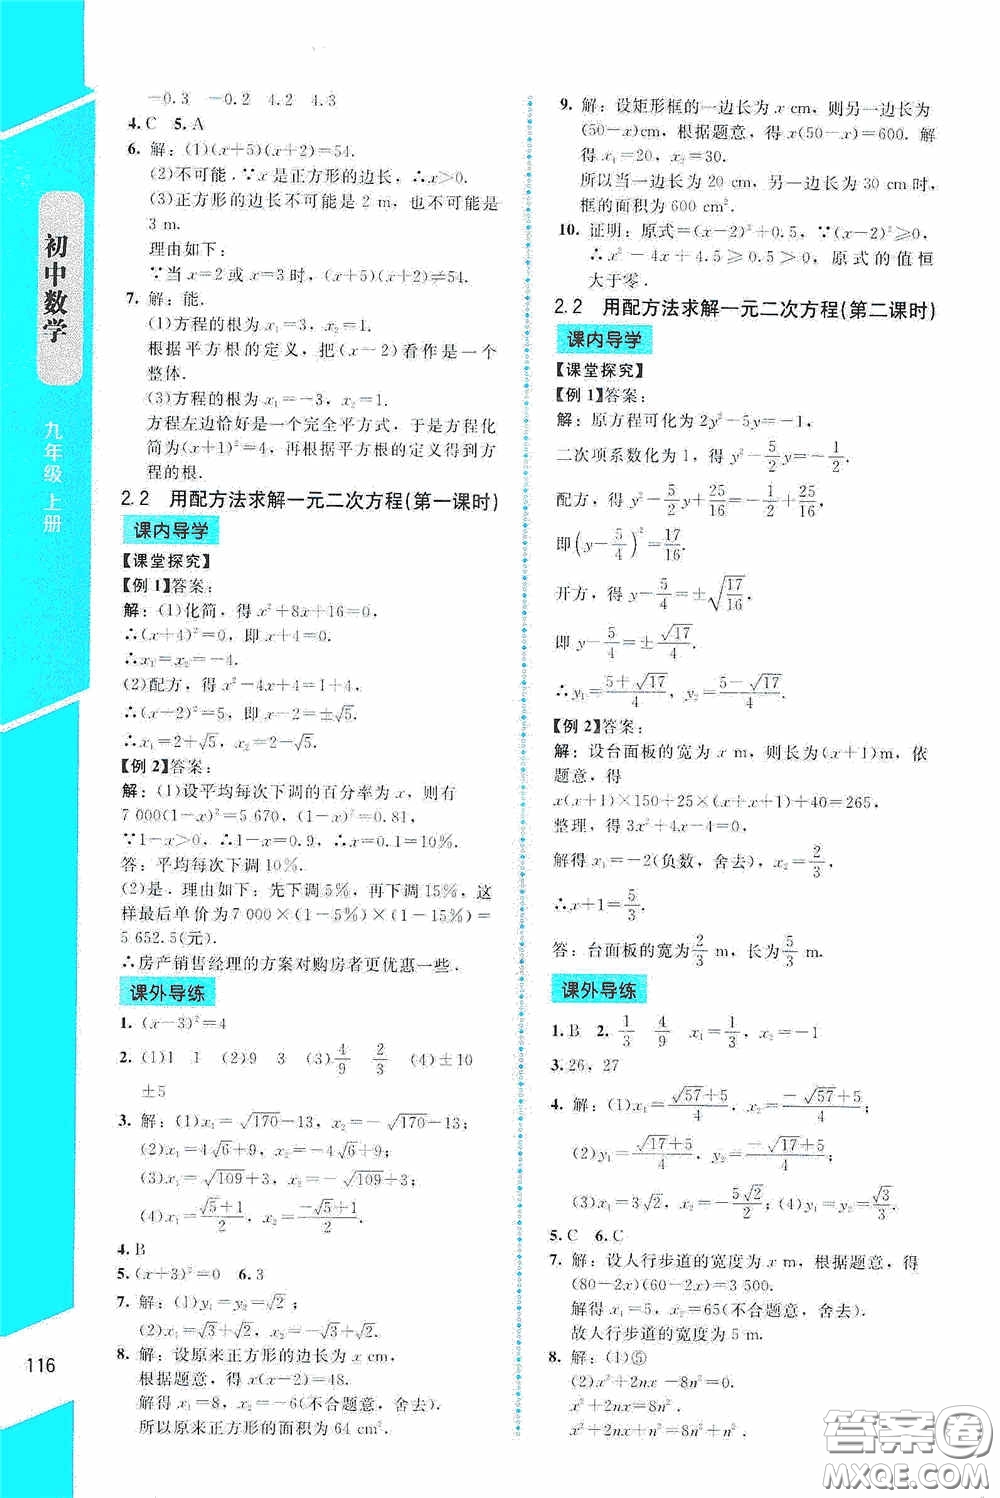 初中数学
九年级 上册
116
-0.3 -0.2 4.2 4.3
4.C 5.A
6. 解:(1)(x+5)(x+2)=54.
(2)不可能.∵x是正方形的边长,∴x>0.
(3)正方形的边长不可能是2 m,也不可能是
3 m.
理由如下:
∵当x=2或x=3时,(x+5)(x+2)≠54.
7. 解:能.
(1)方程的根为x₁=3,x₂=1.
根据平方根的定义,把(x-2)看作是一个
整体.
(3)方程的根为x₁=-3,x₂=1.
方程左边恰好是一个完全平方式,于是方程化
简为(x+1)²=4,再根据平方根的定义得到方
程的根.
2.2 用配方法求解一元二次方程(第一课时)
课内导学
【课堂探究】
【例1】答案:
解:(1)化简,得x²+8x+16=0,
∴(x+4)²=0,即x+4=0.
∴x₁=x₂=-4.
(2)配方,得x²-4x+4=1+4,
∴(x-2)²=5,即x-2=±√5.
∴x₁=2+√5,x₂=2-√5.
【例2】答案:
解:(1)设平均每次下调的百分率为x,则有
7 000(1-x)²=5 670,(1-x)²=0.81,
∵1-x>0,∴1-x=0.9,∴x=0.1=10%.
答:平均每次下调10%.
(2)是.理由如下:先下调5%,再下调15%,这
样最后单价为7 000×(1-5%)×(1-15%)=
5 652.5(元).
∴房产销售经理的方案对购房者更优惠一些.
课外导练
1. (x-3)²=4
2. (1)1 1 (2)9 3 (3)4/9 2/3 (4)±10
±5
3. 解:(1)x₁=√170-13,x₂=-√170-13;
(2)x₁=4√6+9,x₂=-4√6+9;
(3)x₁=√109+3,x₂=-√109+3;
(4)x₁=(√5+1)/2,x₂=(-√5+1)/2.
4. B
5. (x+3)²=0 6.3
7. 解:(1)y₁=y₂=√2;
(2)x₁=√3+√2,x₂=√3-√2.
8. 解:设原来正方形的边长为x cm,
根据题意,得x(x-2)=48.
解得x₁=8,x₂=-6(不合题意,舍去).
所以原来正方形的面积为64 cm².
9. 解:设矩形框的一边长为x cm,则另一边长为
(50-x)cm,根据题意,得x(50-x)=600.解
得x₁=20,x₂=30.
所以当一边长为20 cm,另一边长为30 cm时,
框的面积为600 cm².
10. 证明:原式=(x-2)²+0.5,∵(x-2)²≥0,
∴x²-4x+4.5≥0.5>0,原式的值恒
大于零.
2.2 用配方法求解一元二次方程(第二课时)
课内导学
【课堂探究】
【例1】答案:
解:原方程可化为2y²-5y=-1,
二次项系数化为1,得y²-5/2y=-1/2.
配方,得y²-5/2y+25/16=-1/2+25/16,
即(y-5/4)²=17/16.
开方,得y-5/4=±√(17/16),
即y-5/4=±√17/4.
∴y₁=(5+√17)/4,y₂=(5-√17)/4.
【例2】答案:
解:设台面板的宽为x m,则长为(x+1)m,依
题意,得
x(x+1)×150+25×(x+x+1)+40=265,
整理,得3x²+4x-4=0,
解得x₁=-2(负数,舍去),x₂=2/3.
∴x+1=5/3.
答:台面板的宽为2/3 m,长为5/3 m.
课外导练
1.B 2. 1/3 4/9 x₁=1/3,x₂=-1
3.26,27
4. 解:(1)x₁=(√57+5)/4,x₂=(-√57+5)/4;
(2)y₁=(√17+5)/4,y₂=(-√17+5)/4;
(3)x₁=3√2,x₂=-5√2/2;(4)y₁=y₂=√3/3.
5.C 6.C
7. 解:设人行步道的宽度为x m,根据题意,得
(80-2x)(60-2x)=3 500.
解得x₁=5,x₂=65(不合题意,舍去).
故人行步道的宽度为5 m.
8. 解:(1)⑤
(2)x²+2nx-8n²=0,
x²+2nx=8n²,
x²+2nx+n²=8n²+n²,
答案圈
MXQE.COM